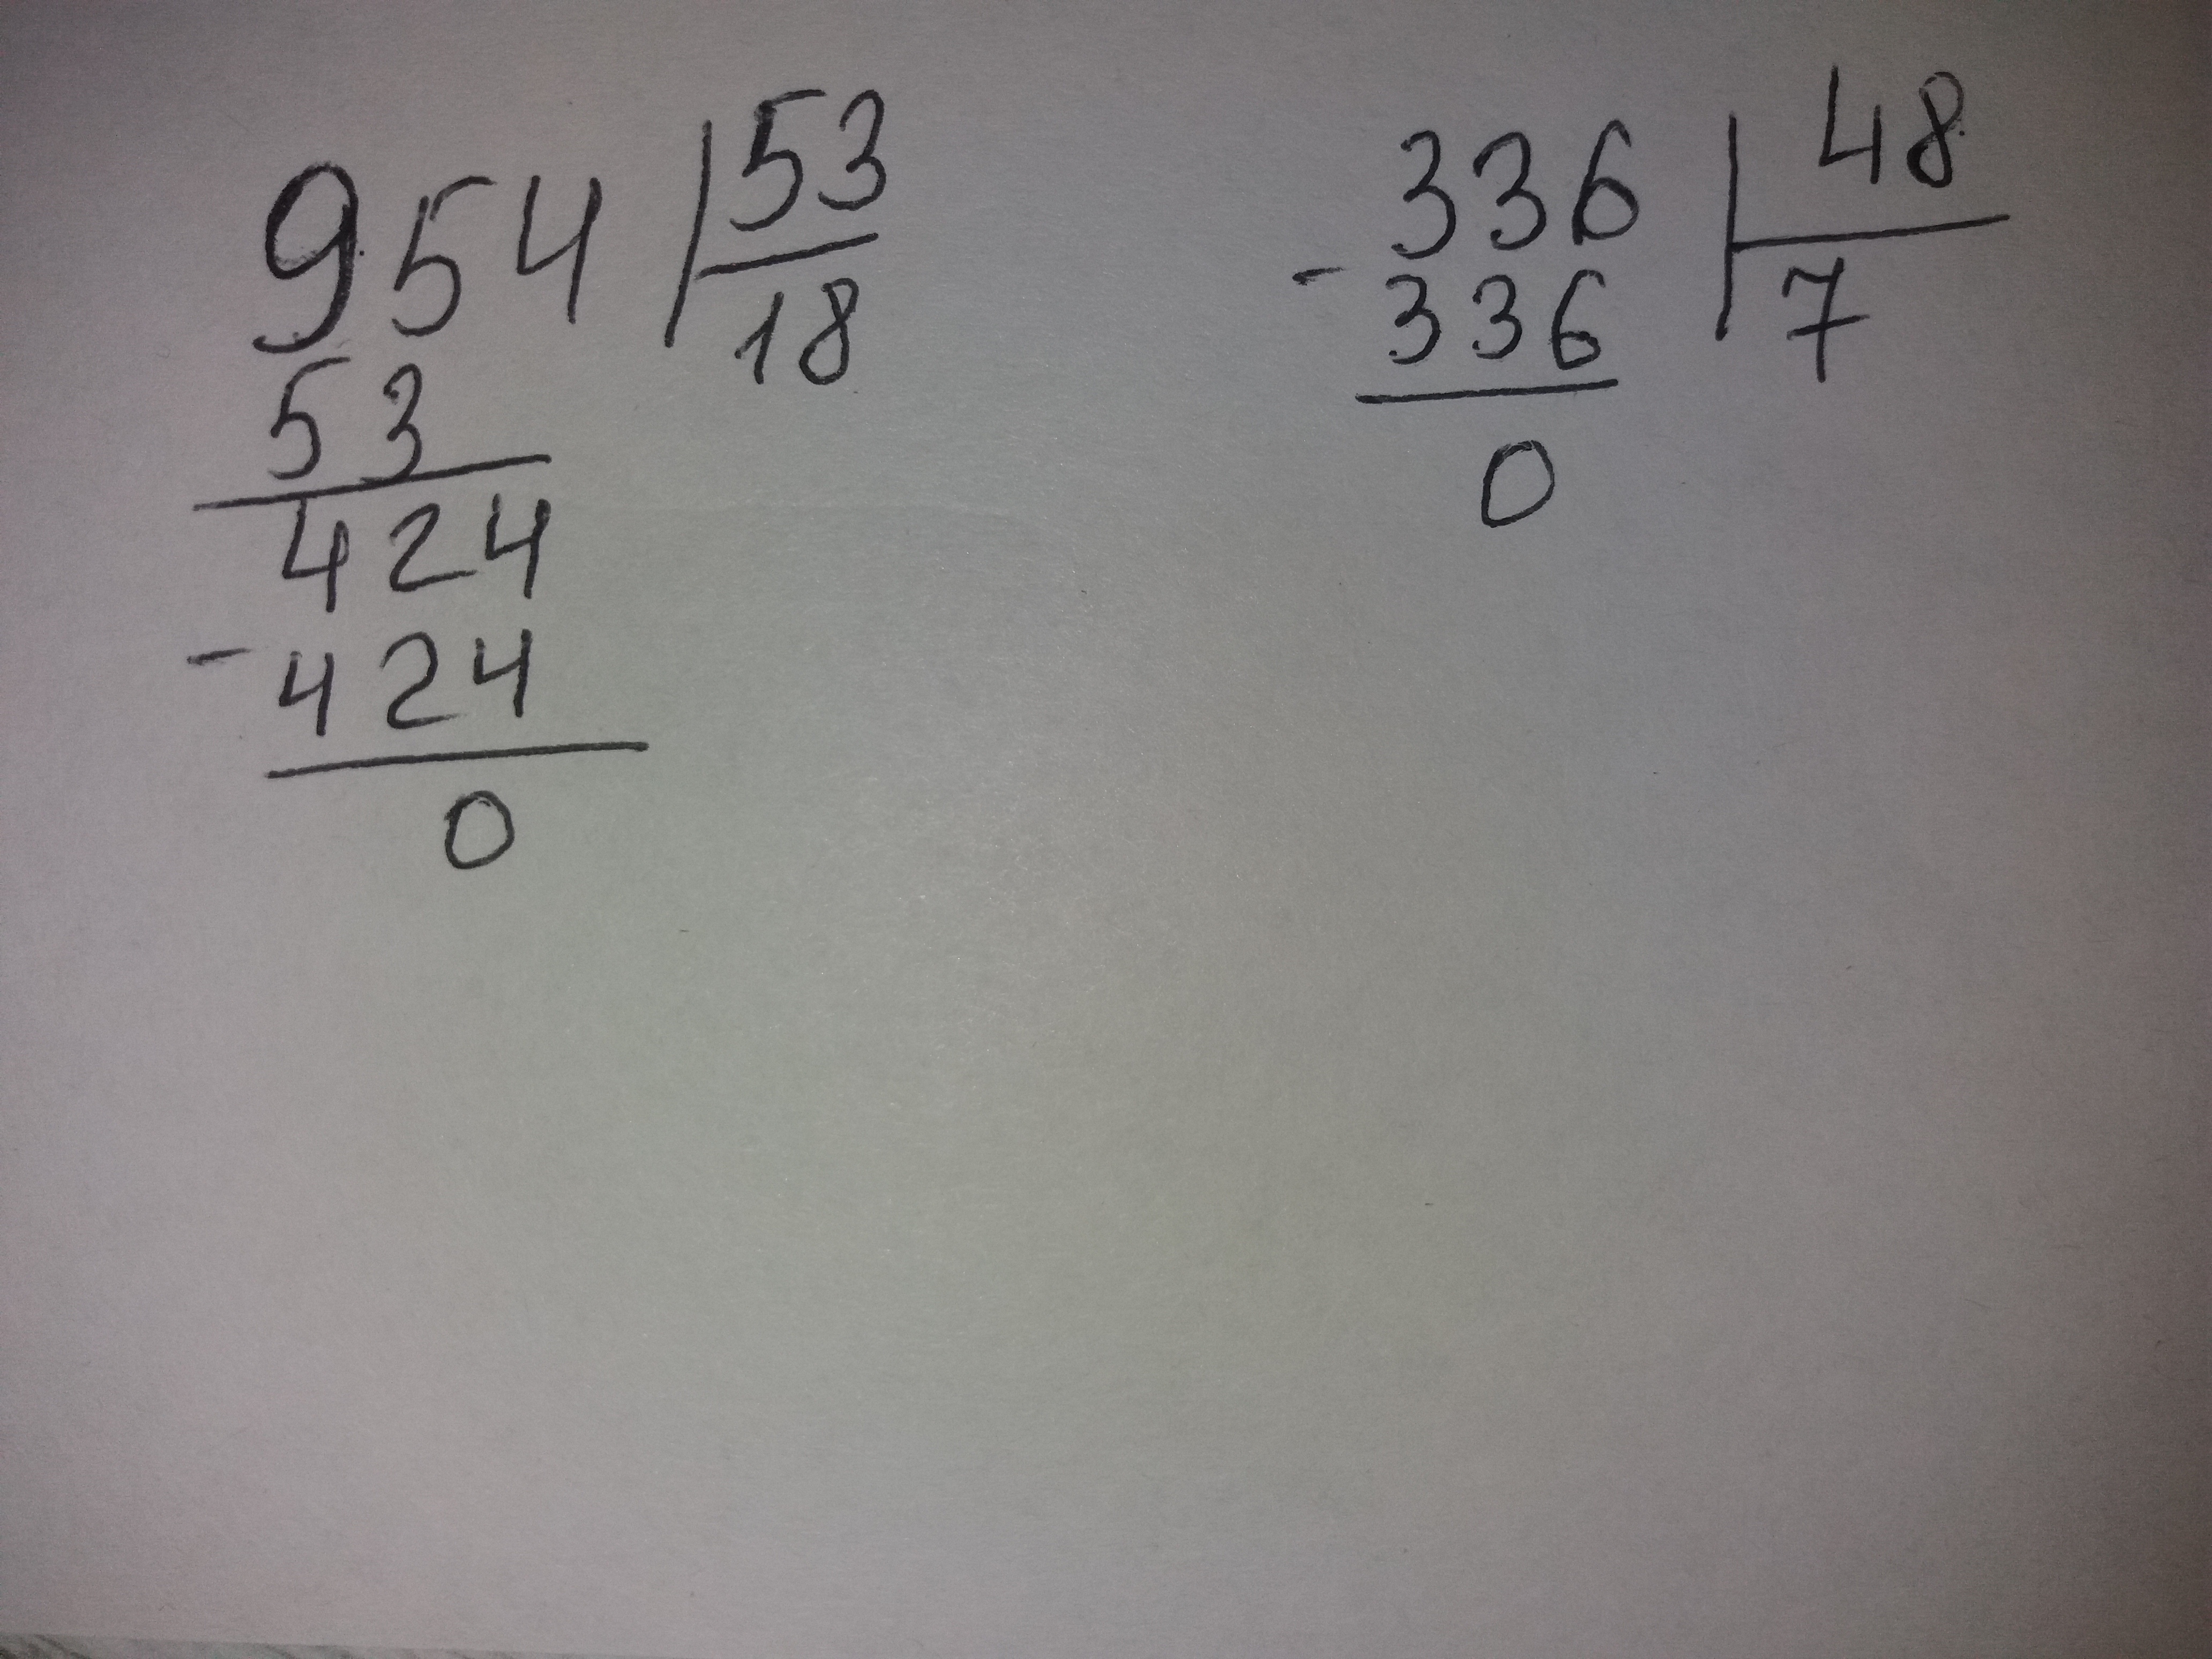 954 53
18
53
424
- 424
0
336 48
- 336 7
0